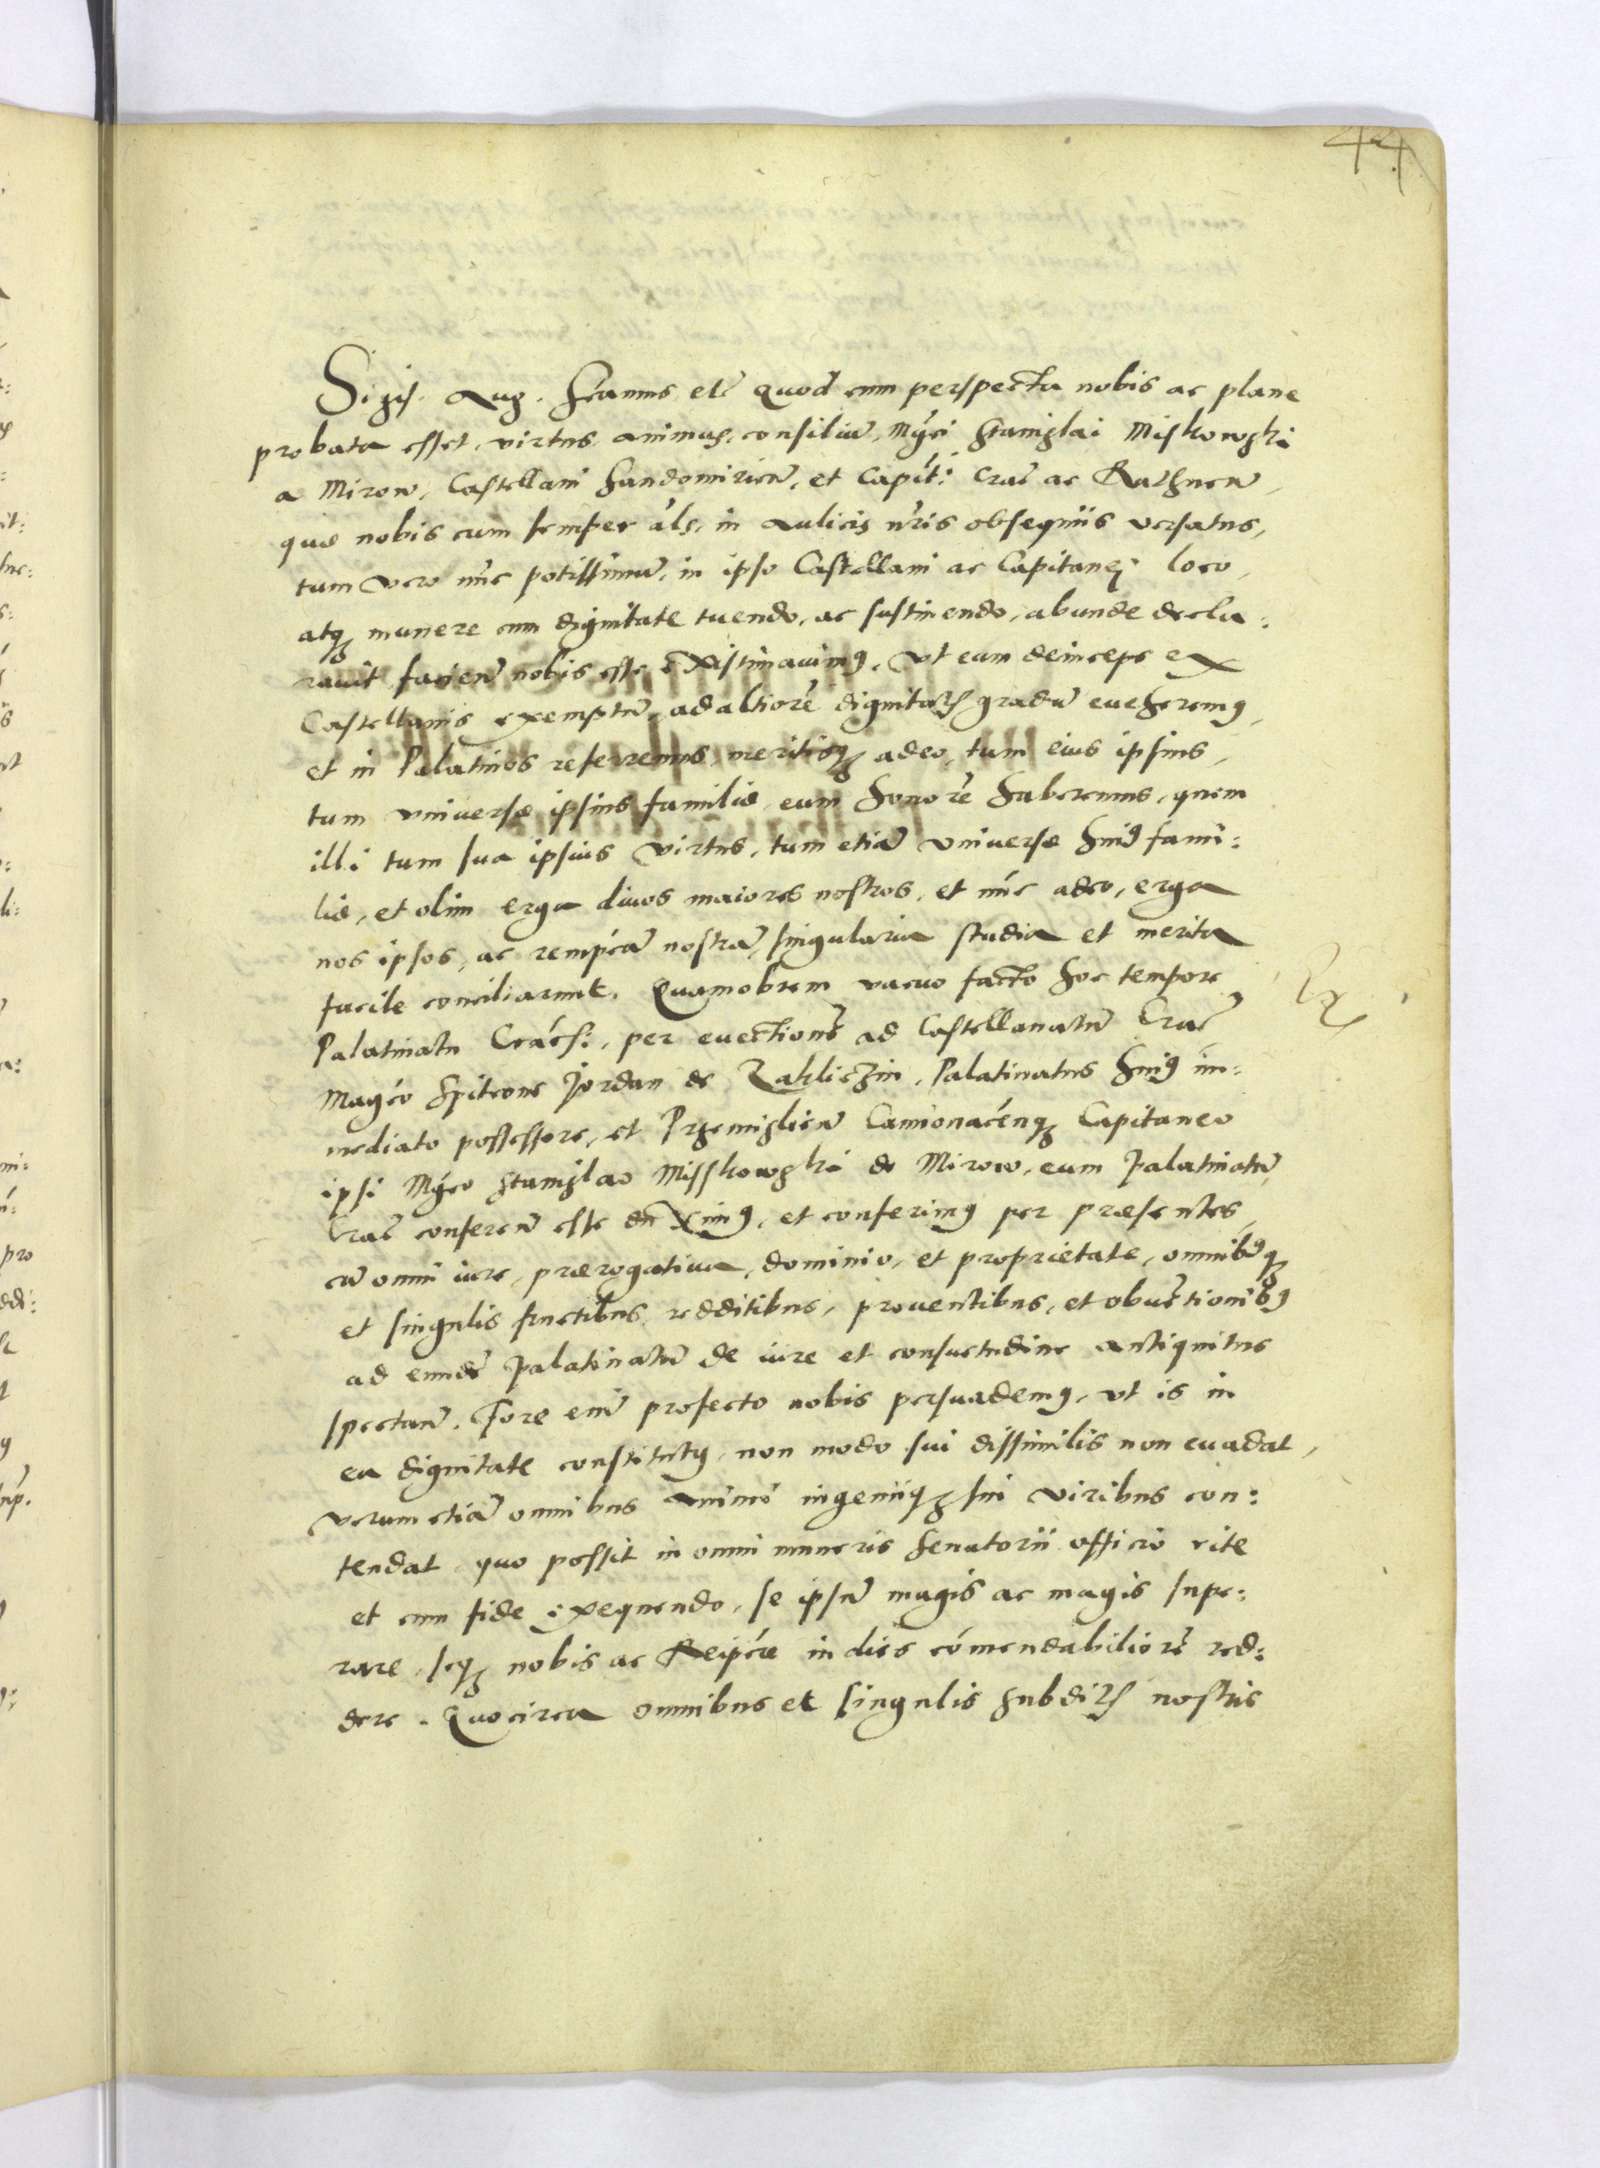 44
Sigis. Aug. Scimus etc̄ Quod cum perspecta nobis ac plane
probata esset, virtus animus, consiliū, Mg̃ci Stanislai Miskowski
a Mirow, Castellani Sandomiricn̄, et Capit: Crac̄ ac Rathnen̄,
quã nobis cum semper als, in aulicis nr̃is obsequiis versatus,
tum vero nūc potissimū, in ipso Castellani ac Capitanei loco,
atq; munere cum dignitate tuendo, ac sustinendo, abunde decla:
ravit, facien̄ nobis esse existimavimus, vt eum deinceps ex
Castellanis exemptū, ad altiorē dignitatis gradū eueheremus,
et in Palatinos referremus, meritisq; adeo, tum eius ipsius,
tum vniuersæ ipsius familiæ, eum honorē haberemus, quem
illi tum sua ipsius virtus, tum etiā vniuersæ huius fami:
liæ, et olim erga diuos maiores nostros, et nūc adeo, erga
nos ipsos, ac rempćā nostrā, singularia studia et merita
facile conciliarunt. Quamobrem vacuo facto hoc tempore
Palatinatu Crac̄s:, per euectionē ad Castellanatū Crac̄
Magćo Spitcone Jordan de Zakliczin, Palatinatus huius im:
mediato possessore, et Przemislien̄ Camionacen̄q; Capitaneo
ipsi Mg̃co Stanislao Misskowski de Mirow, eum Palatinatū,
Crac̄ conferen̄ esse duximus, et conferimus per præsentes,
cū omni iure, prærogatiua, dominio, et proprietate, omnibusq;
et singulis fructibus, redditibus, prouentibus, et obuentionibus
ad eundē Palatinatū de iure et consuetudine antiquitus
spectan̄. Fore enī profecto nobis persuademus, vt is in
ea dignitate constitutus, non modo sui dissimilis non euadat,
verum etiā omnibus animi ingeniiq; sui viribus con:
tendat quo possit in omni muneris senatorii officio rite
et cum fide exequendo, se ipsū magis ac magis supe:
rare, seq; nobis ac Reipćæ in dies cōmendabiliorē red:
dere. Quocirca omnibus et singulis subditis nostris